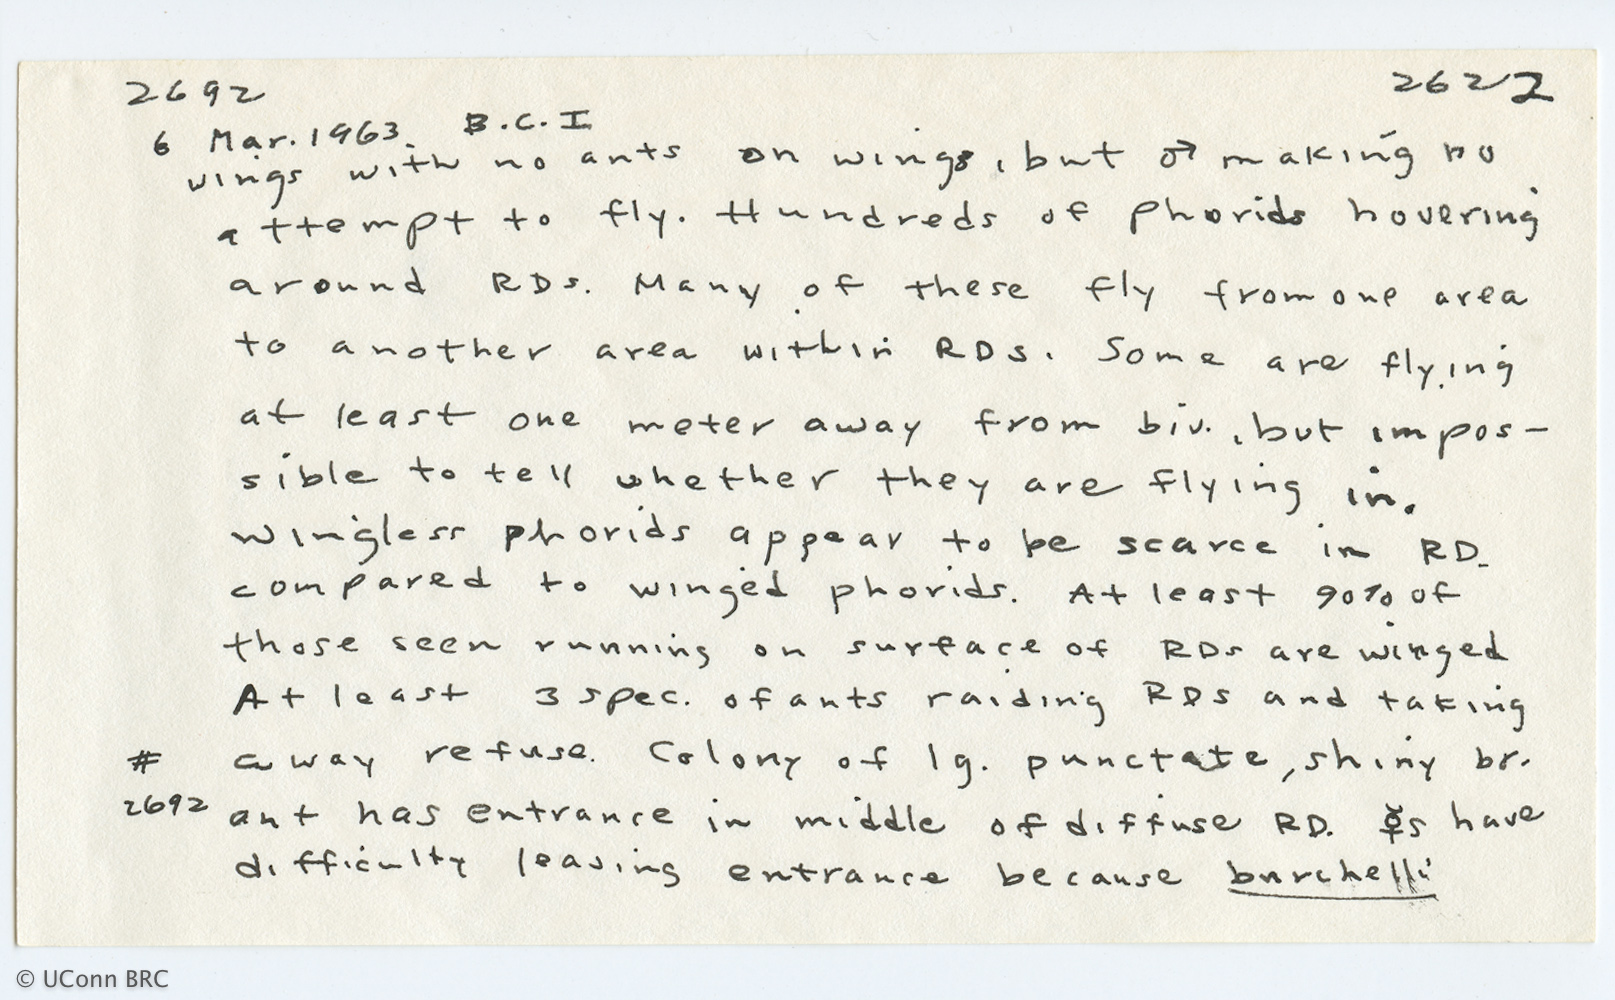 2692 2622
6 Mar. 1963. B.C.I
wings with no ants on wings, but ♂ making no
attempt to fly. Hundreds of phorids hovering
around RDs. Many of these fly from one area
to another area within RDs. Some are flying
at least one meter away from biv., but impos-
sible to tell whether they are flying in.
Wingless phorids appear to be scarce in RD.
compared to winged phorids. At least 90% of
those seen running on surface of RDs are winged
At least 3 spec. of ants raiding RDs and taking
# away refuse. Colony of lg. punctate, shiny br.
2692 ant has entrance in middle of diffuse RD. ☿s have
difficulty leaving entrance because burchelli
© UConn BRC